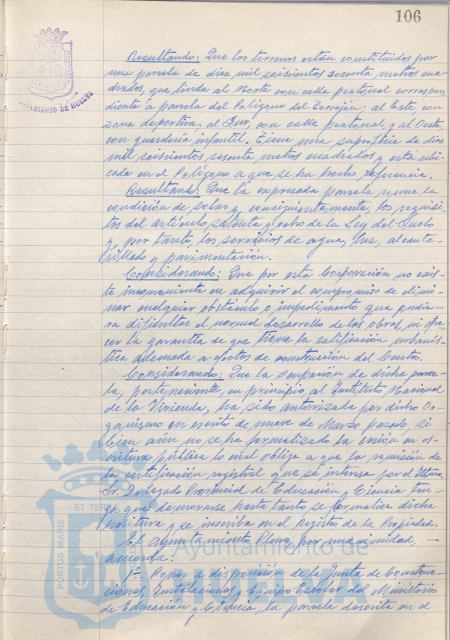 106
AYUNTAMIENTO DE HUELVA
Resultando: Que los terrenos están constituidos por
una parcela de diez mil seiscientos sesenta metros cua-
drados, que linda al Norte con calle peatonal correspon-
diente a parcela del Polígono del Torrejón; al Este, con
zona deportiva, al Sur, con calle peatonal, y al Oeste,
con guardería infantil. Tiene una superficie de diez
mil seiscientos sesenta metros cuadrados y está ubi-
cada en el Polígono a que se ha hecho referencia.
Resultando: Que la expresada parcela reune la
condición de solar y consiguientemente, los requisi-
tos del artículo setenta y ocho de la Ley del Suelo
y, por tanto, los servicios de agua, luz, alcanta-
rillado y pavimentación.
Considerando: Que por esta Corporación no exis-
te inconveniente en adquirir el compromiso de elimi-
nar cualquier obstáculo o impedimento que pudie-
ra dificultar el normal desarrollo de las obras, ni ofre-
cer la garantía de que tiene la calificación urbanís-
tica adecuada a efectos de construcción del Centro.
Considerando: Que la ocupación de dicha parce-
la, perteneciente, en principio, al Instituto Nacional
de la Vivienda, ha sido autorizada por dicho Or-
ganismo en escrito de nueve de Marzo pasado, si
bien aún no se ha formalizado la cesión en es-
critura pública lo cual obliga a que la remisión de
la certificación registral que se interesa por el Iltmo.
Sr. Delegado Provincial de Educación y Ciencia ten-
ga que demorarse hasta tanto se formalice dicha
escritura y se inscriba en el Registro de la Propiedad.
El Ayuntamiento Pleno, por unanimidad,
acuerda:
1º.- Poner a disposición de la Junta de Construc-
ciones, Instalaciones y Equipo Escolar del Ministerio
de Educación y Ciencia, la parcela descrita en el
PORTUS MARIS
ET TERRAE
Ayuntamiento de